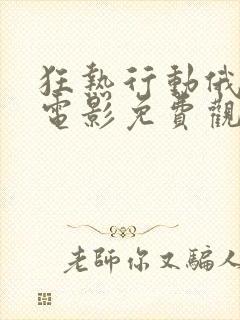 狂熱行動俄
電影免費觀
老師你又騙人